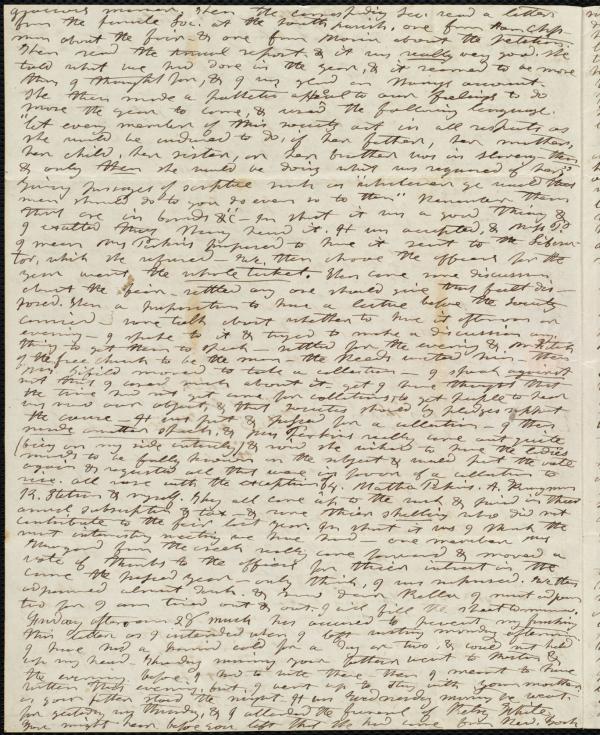 gracious manner, then the corresponding Sec. read a letter
from the female Soc. at the south parish, one from Ham. Chap-
man about the fair & one from Maria about the petitions.
Then read the Annual report, & it was really very good. She
told what we had done in the year, & it seemed to be more
than I thought for, & I was glad on Mary's account.
She then made a pathetic appeal to our feelings to do
more the year to come, & used the following language.
"let every member of this society act in all respects as
she would be induced to do, if her father, her mother,
her child, her sister, or her brother was in slavery then
& only then she would be doing what was required of her."
many passages of scripture such as "whatsoever ye would that
men should do to you do ye even so to them." Remember them
that are in bonds &c — In short it was a good thing &
I exalted that Mary heard it. It was accepted, &
I mean Mrs Perkins proposed to have it sent to the Libera-
tor, which she refused — We then chose the officers for the
year went the whole ticket. Then came some discussion
about the fair — settled any one should give that felt dis-
posed. Then a proposition to have a lecture before the society
carried — some talk about whether to have it afternoon or
evening — I spoke to it & tryed to make a discussion any
thing to get them to speak — settled for the evening &
of the free church to be the man — the needs wanted him — then
moved to take a collection — I spoke against
not that I cared much about it yet I have thought that
the time had not yet come for collections, to get people to hear
us was our object, & that societies should by pledges support
the cause — It was put & passed for a collection — I then
made another speech, & Miss Perkins really came out quite
(being on my side entirely) & said she wished to have the ladies
minds to be fully in the subject & would put the vote
again & requested all that were in favor of a collection to
rise. all rose with the exception of Martha Perkins. A.
& myself. They all came up to the mark & paid in their
annual subscription & tax — & some their shilling who did not
contribute to the fair last year. In short it was I think the
most interesting meeting we have had — one member
from the really came forward & moved a
vote of thanks to the officers for their interest in the
cause the passed year — only think, I was surprised. We then
adjourned almost dark. & now dear I must adjourn
too for I am tired out & out. I will fill the sheet tomorrow.
Friday afternoon 28 much has occurred to prevent my finishing
this letter as I intended when I left writing monday afternoon.
I have had a horrid cold for a day or two, & could not hold
up my head. Thursday morning your father went to Boston &
the evening before I had to write there then I meant to have
written that evening but I went up to stay with your mother
as your father staid the night. It was Wednesday morning he went.
for yesterday was thursday, & I attended the funeral of Betsy White
You might have heard before you left that she had come from New York